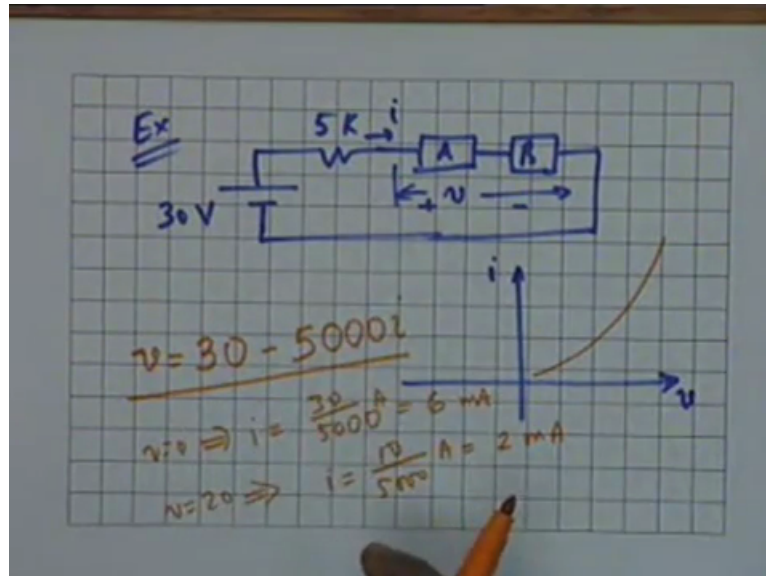 Ex
5 K i
A B
+ v -
30 V
i
v = 30 - 5000i
v
v=0 ⇒ i = 30/5000 A = 6 mA
v=20 ⇒ i = 10/5000 A = 2 mA